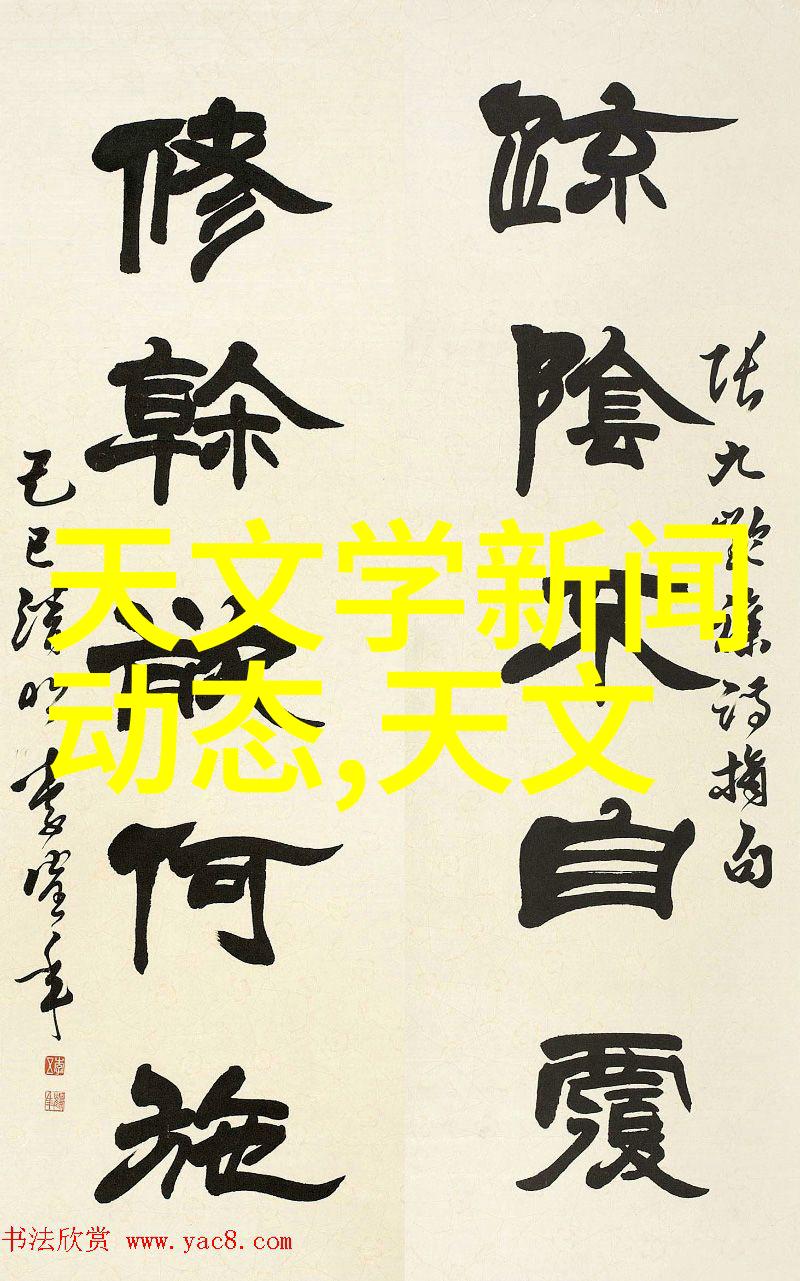 踈陰不自覆
張九齡雜詩摘句
修幹欲何施
己巳清明李年
天文学新闻
动态,天文
书法欣赏 www.yac8.com